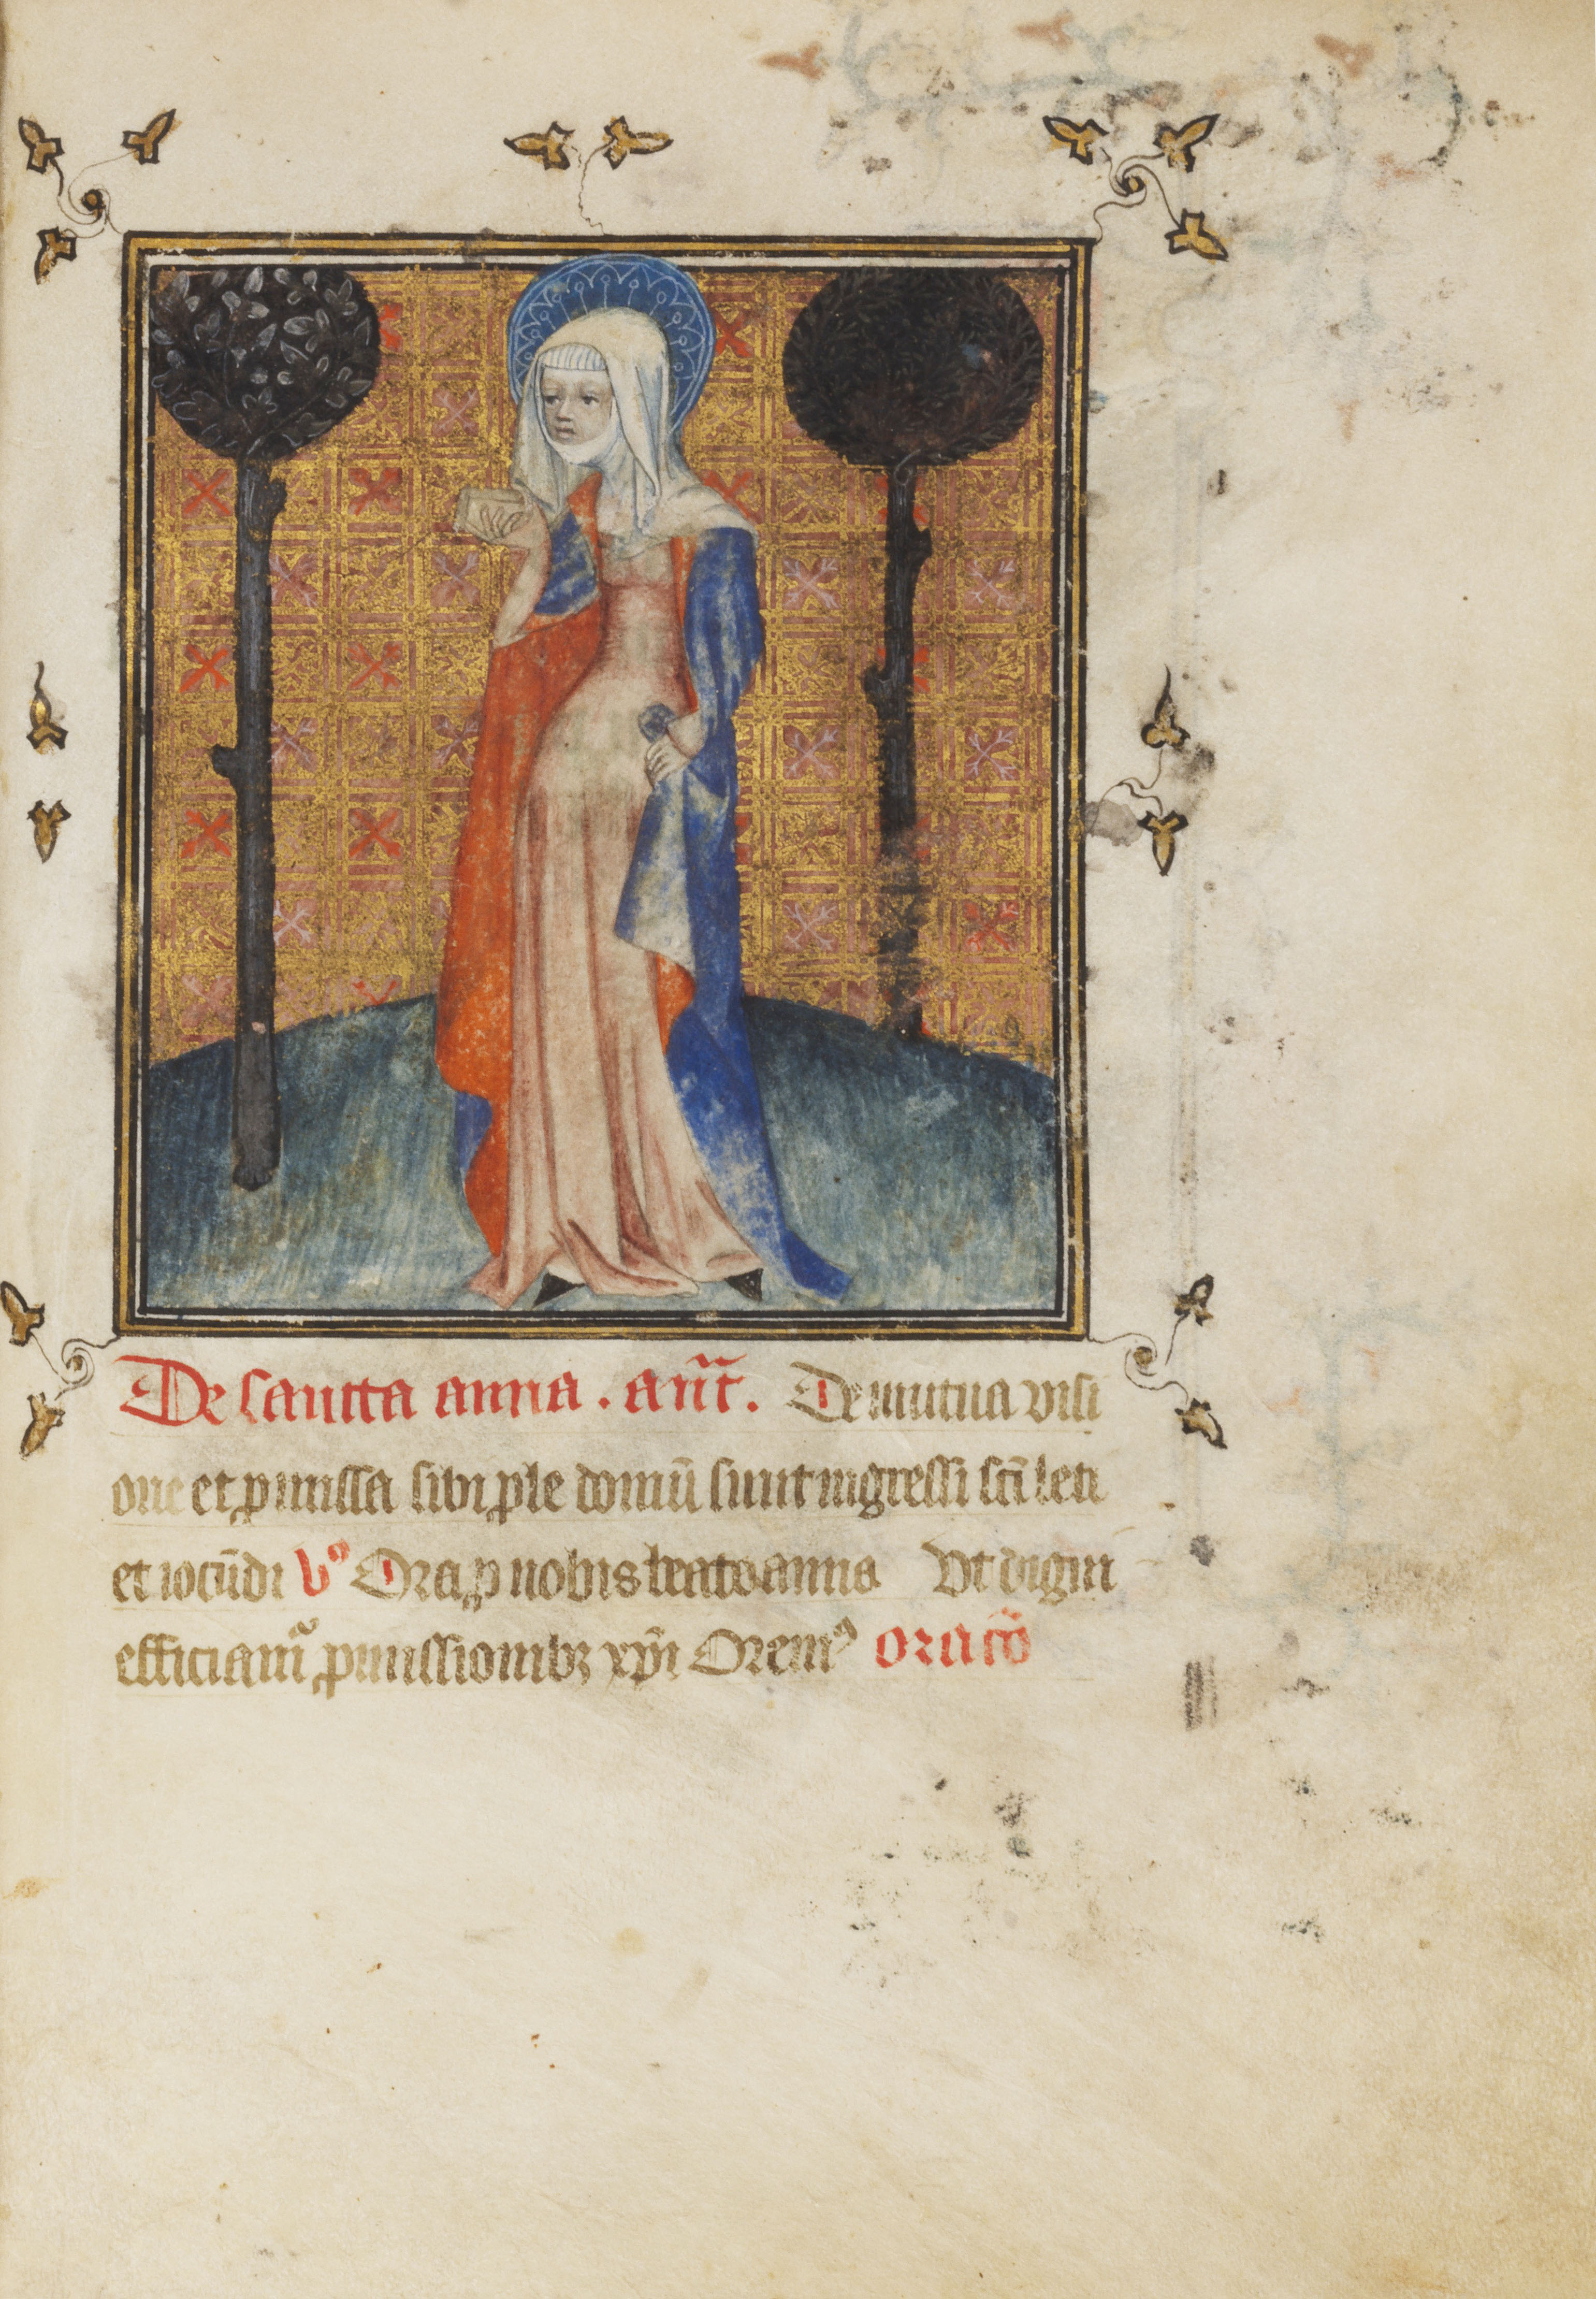 De sancta anna . an̄t . De mutua visi
one et ꝓmissa sibi ple domū sunt ingressi sc̄i leti
et iocūdi V̾ Ora ꝓ nobis beata anna Vt digni
efficiamᷣ ꝓmissionibꝫ xp̄i Oremꝰ oracō